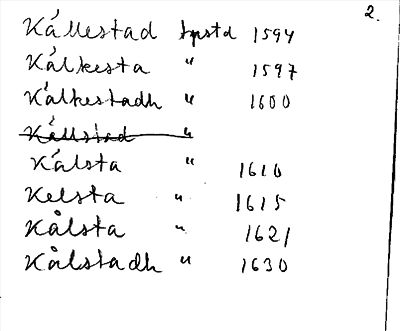 2.
Kållestad hpstd 1594
Kålkesta " 1597
Kålkestadh " 1600
Kållstad "
Kålsta " 1610
Kelsta " 1615
Kålsta " 1621
Kålstadh " 1630